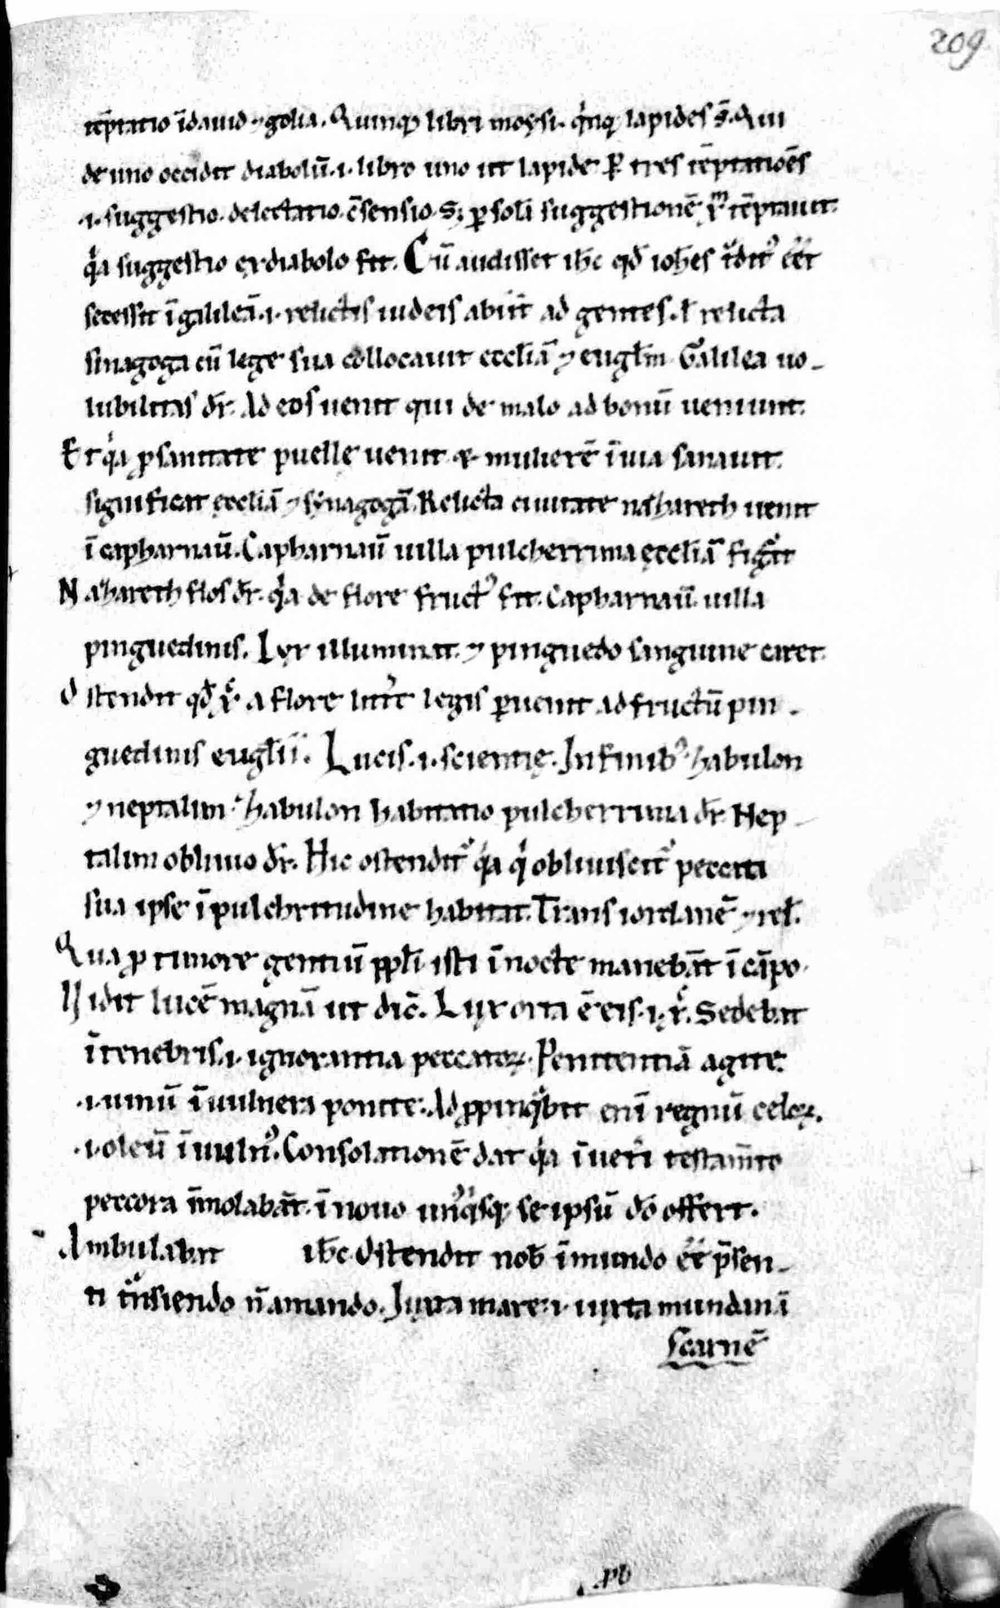 209
tẽptatio ĩ dauid ⁊ golia. Quinq; libri moysi. q̇nq; lapides s̃. Qui
de uno occidit diabolũ .i. libro uno ut lapide. Per tres tẽptatiões
.i. suggestio. delectatio. c̃sensio. S; p soli suggestionẽ tẽptauit.
q̇a suggestio ex diabolo fit. Cũ audisset ih̅c qd̅ ioh̅es tͣditꝰ eẽt
secessit ĩ galileã .i. relictis iudeis abiit ad gentes. ł relicta
sinagoga cũ lege sua collocauit eccl̅iã ⁊ eugl̅m. Galilea uo-
lubilitas dr̅. Ad eos uenit qui de malo ad bonũ ueniunt.
Et q̇a p sanitate puelle uenit & mulierẽ ĩ uia sanauit.
significat ęccl̅iã ⁊ sẏnagogã. Relicta ciuitate nazareth uenit
ĩ capharnaũ. Capharnaũ uilla pulcherrima ęccl̅iã figͣt
Nazareth flos dr̅. q̇a de flore fructꝰ fit. Capharnaũ. uilla
pinguedinis. Lex illuminat. ⁊ pinguedo sanguine caret.
Ostendit qd̅ a flore littͤ legis puenit ad fructũ pin-
guedinis eugl̅ii. Lucis .i. scientię. In finibꝰ zabulon
⁊ neptalim. zabulon habitatio pulcherrima dr̅. Nep-
talim obliuio dr̅. Hic ostenditͬ q̇a q̇ obliuiscitͬ peccata
sua ipse ĩ pulchritudine habitat. Trans iordanẽ ⁊ rel̅.
Quia p timore gentiũ ppl̅i isti ĩ nocte manebãt ĩ cãpo.
Uidit lucẽ magnã ut dic̅. Lux orta ẽ eis .i. Sedebat
ĩ tenebris .i. ignorantia peccatoꝝ. Penitentiã agite.
.i. uinũ ĩ uulnera ponite. Adppinqͣbit enĩ regnũ celoꝝ.
.i. oleũ ĩ uulnꝰ. Consolationẽ dat q̇a ĩ uet̃i testam̃to
peccora ĩmolabãt. ĩ nouo unꝰq̇sq; se ipsũ do̅ offert.
Ambulabat ih̅c Ostendit nob̅ ĩ mundo eẽ p̃sen-
ti tͣnsiendo ñ amando. Iuxta mare .i. iuxta mundanã
carnẽ